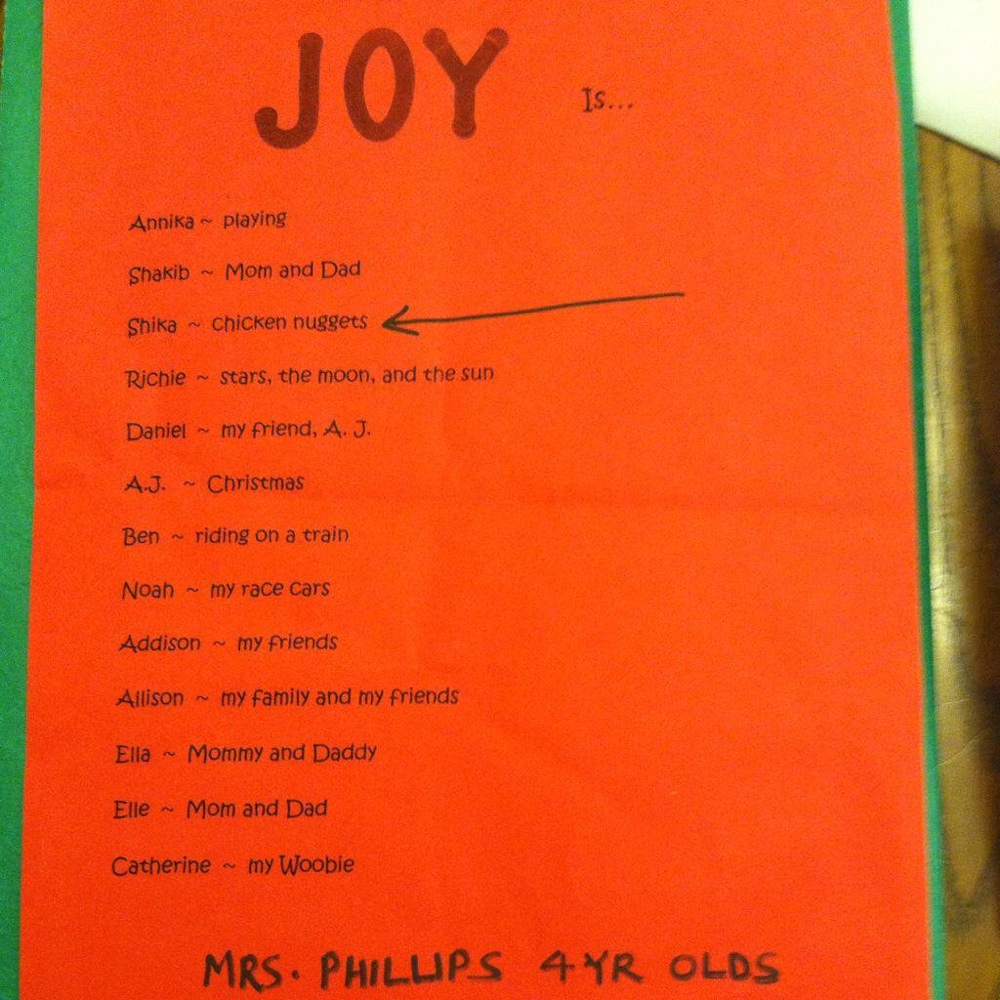 JOY Is...
Annika ~ playing
Shakib ~ Mom and Dad
Shika ~ chicken nuggets
Richie ~ stars, the moon, and the sun
Daniel ~ my friend, A. J.
A.J. ~ Christmas
Ben ~ riding on a train
Noah ~ my race cars
Addison ~ my friends
Allison ~ my family and my friends
Ella ~ Mommy and Daddy
Elle ~ Mom and Dad
Catherine ~ my Woobie
MRS. PHILLIPS 4 YR OLDS